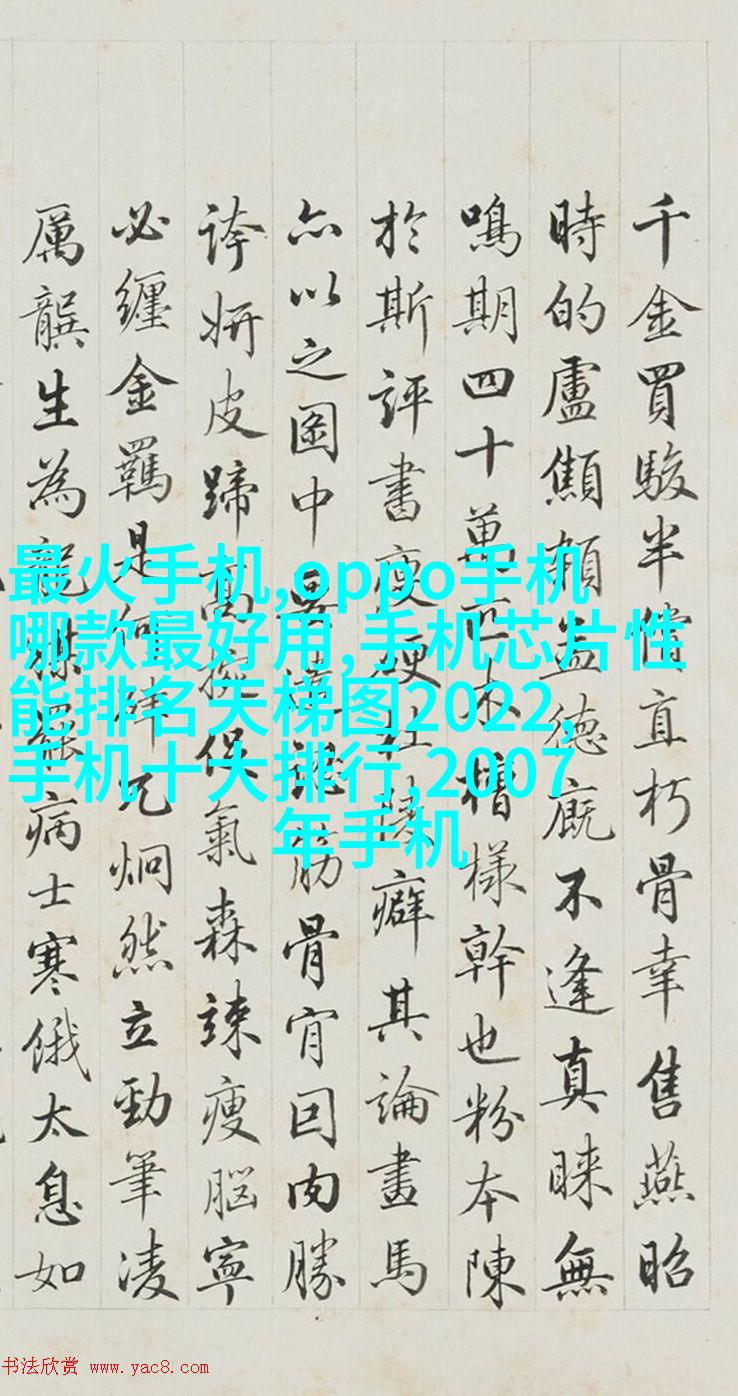 千金買駿半償直朽骨幸售燕昭
時的盧顦顇益德廐不逢真睞無
鳴期四十萬匹木槽樣幹也粉本陳
於斯評書瘦硬杜陵癖其論畫馬
亦以之圖中筋骨肉勝
誇妍皮蹄高促氣森竦瘦腦寧
必纏金羈是何兀炯然立勁筆凌
厲龔生為龍媒病士寒餓太息如
最火手机,oppo手机
哪款最好用,手机芯片性
能排名天梯图2022,
手机十大排行,2007
年手机
书法欣赏 www.yac8.com